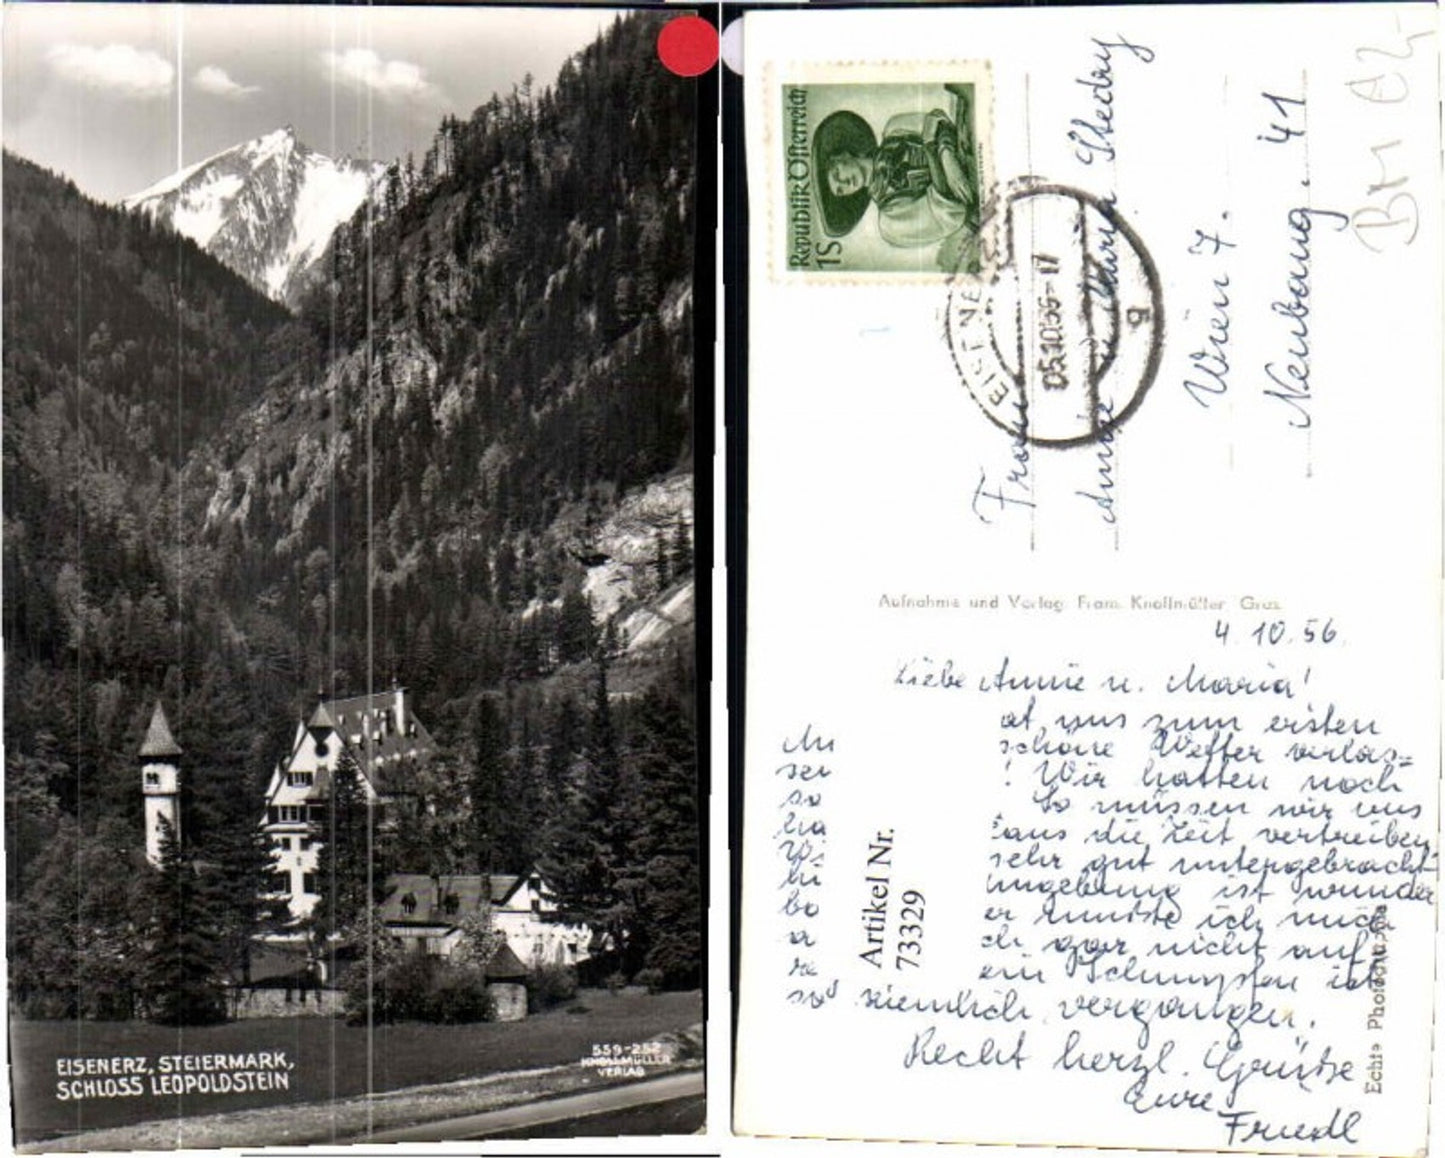 EISENERZ, STEIERMARK,
SCHLOSS LEOPOLDSTEIN
559-252
KNOLLMÜLLER
VERLAG
Republik Österreich
1S
EISENE
05.10.56-17
Annie u. Maria
Wien 7.
Neubaug. 41
BM
Aufnahme und Verlag Franz Knollmüller Graz
4. 10. 56.
Liebe Annie u. Maria!
at uns zum ersten
schöne Wetter verlas=
! Wir hatten noch
so So müssen wir uns
ha aus die Zeit vertreiben
Wi sehr gut untergebracht
um umgebung ist wunder
bo er mußte ich mich
a ch gar nicht auf
re ein Schnupfen ist
so ziemlich vergangen.
Recht herzl. Grüße
Eure
Friedl
Artikel Nr.
73329
Echte Photo